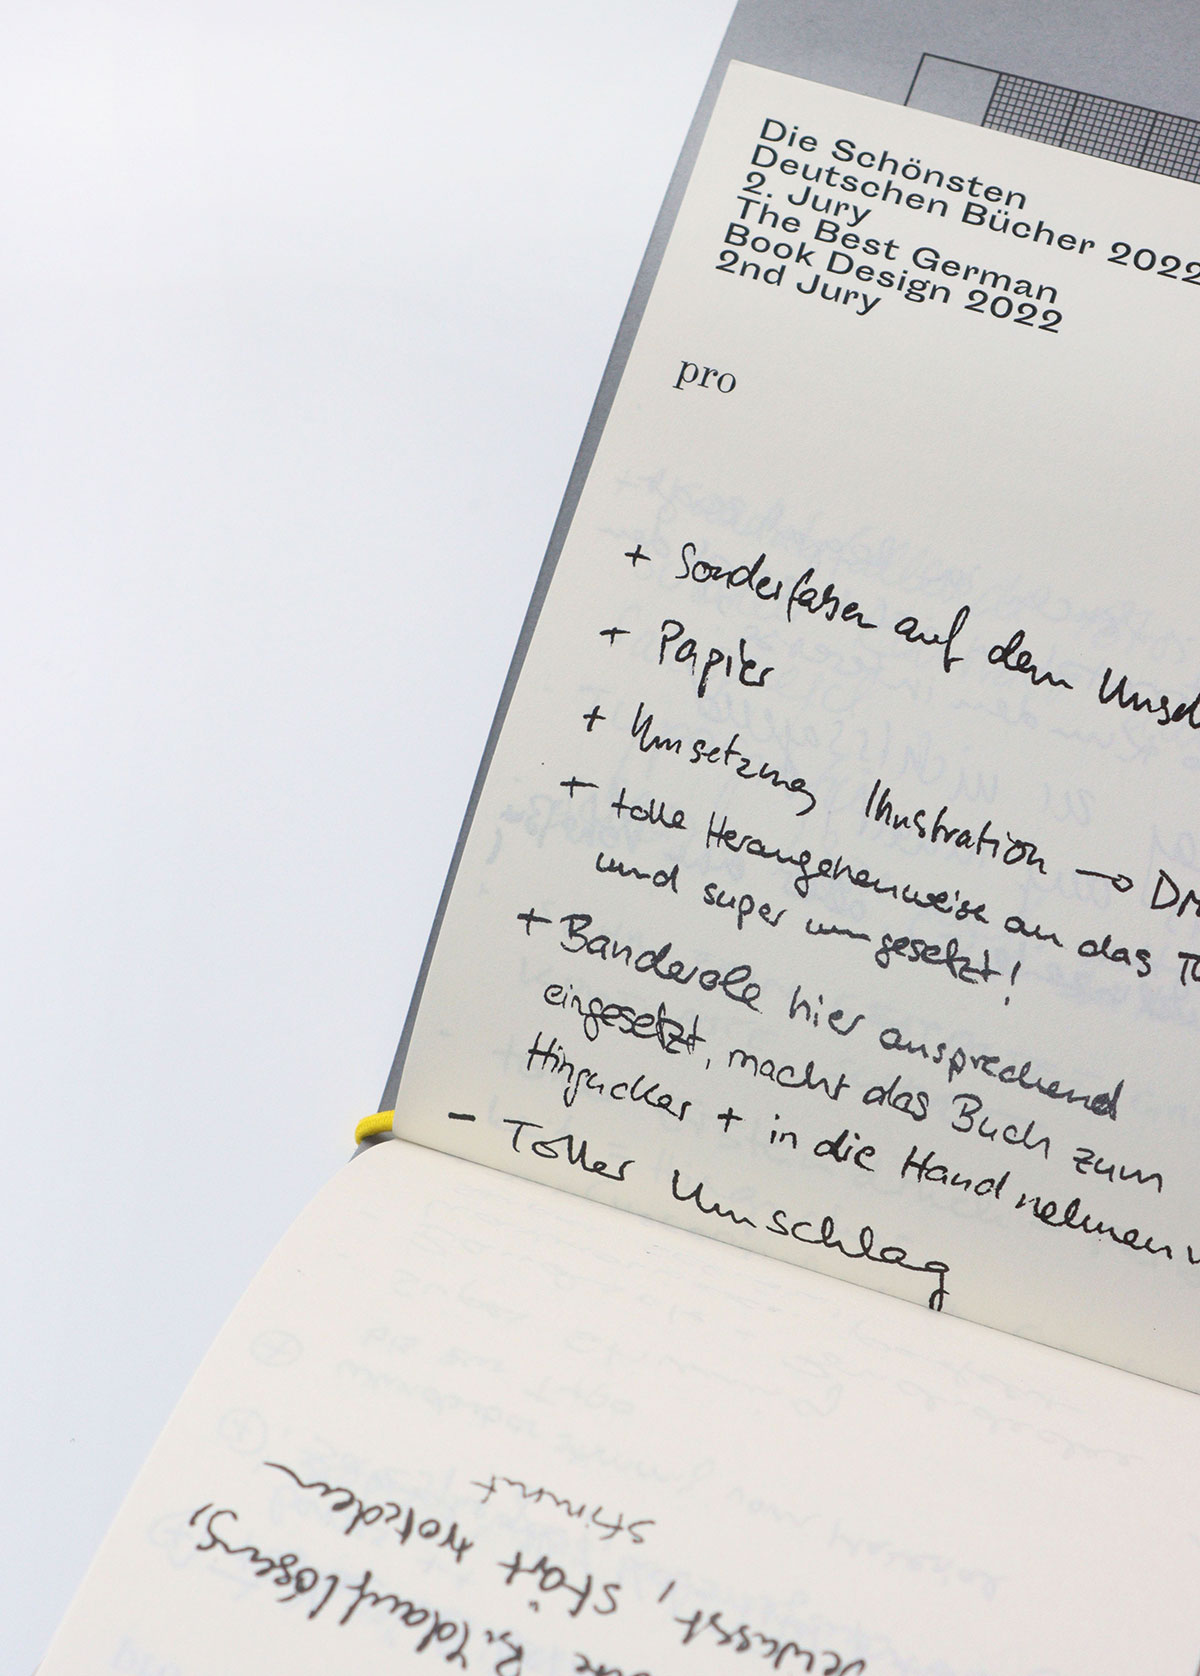 Die Schönsten
Deutschen Bücher 2022
2. Jury
The Best German
Book Design 2022
2nd Jury
pro
+ Sonderfarben auf dem
+ Papier
+ Umsetzung Illustration →
+ tolle Herangehenweise an das
und super umgesetzt!
+ Banderole hier ansprechend
eingesetzt, macht das Buch zum
Hingucker + in die Hand nehmen
– Toller Umschlag
Bildauflösung,
bewusst, stört trotzdem
stimmt